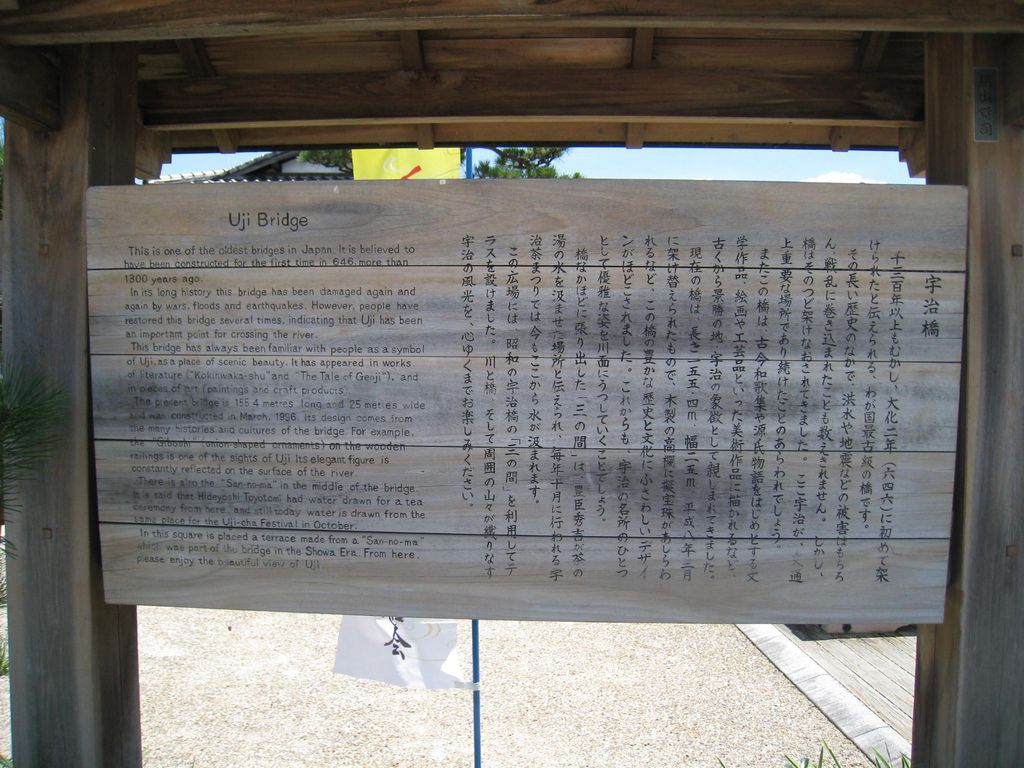 Uji Bridge
This is one of the oldest bridges in Japan. It is believed to
have been constructed for the first time in 646, more than
1300 years ago.
In its long history this bridge has been damaged again and
again by wars, floods and earthquakes. However, people have
restored this bridge several times, indicating that Uji has been
an important point for crossing the river.
This bridge has always been familiar with people as a symbol
of Uji, as a place of scenic beauty. It has appeared in works
of literature ("Kokinwaka-shu" and "The Tale of Genji"), and
in pieces of art (paintings and craft products).
The present bridge is 155.4 metres long and 25 metres wide
and was constructed in March, 1996. Its design comes from
the many histories and cultures of the bridge. For example,
the "Giboshi" (onion-shaped ornaments) on the wooden
railings is one of the sights of Uji. Its elegant figure is
constantly reflected on the surface of the river.
There is also the "San-no-ma" in the middle of the bridge.
It is said that Hideyoshi Toyotomi had water drawn for a tea
ceremony from here, and still today water is drawn from the
same place for the Uji-cha Festival in October.
In this square is placed a terrace made from a "San-no-ma"
which was part of the bridge in the Showa Era. From here,
please enjoy the beautiful view of Uji.
宇治橋
千三百年以上もむかし、大化二年(六四六)に初めて架
けられたと伝えられる、わが国最古級の橋です。
その長い歴史のなかで、洪水や地震などの被害はもちろ
ん、戦乱に巻き込まれたことも数えきれません。しかし、
橋はそのつど架けなおされてきました。ここ宇治が、交通
上重要な場所であり続けたことのあらわれでしょう。
またこの橋は、古今和歌集や源氏物語をはじめとする文
学作品、絵画や工芸品といった美術作品に描かれるなど、
古くから景勝の地・宇治の象徴として親しまれてきました。
現在の橋は、長さ一五五・四m、幅二五m。平成八年三月
に架け替えられたもので、木製の高欄に擬宝珠があしらわ
れるなど、この橋の豊かな歴史と文化にふさわしいデザイ
ンがほどこされました。これからも、宇治の名所のひとつ
として優雅な姿を川面にうつしていくことでしょう。
橋なかほどに張り出した「三の間」は、豊臣秀吉が茶の
湯の水を汲ませた場所と伝えられ、毎年十月に行われる宇
治茶まつりでは今もここから水が汲まれます。
この広場には、昭和の宇治橋の「三の間」を利用してテ
ラスを設けました。川と橋、そして周囲の山々が織りなす
宇治の風光を、心ゆくまでお楽しみください。
会